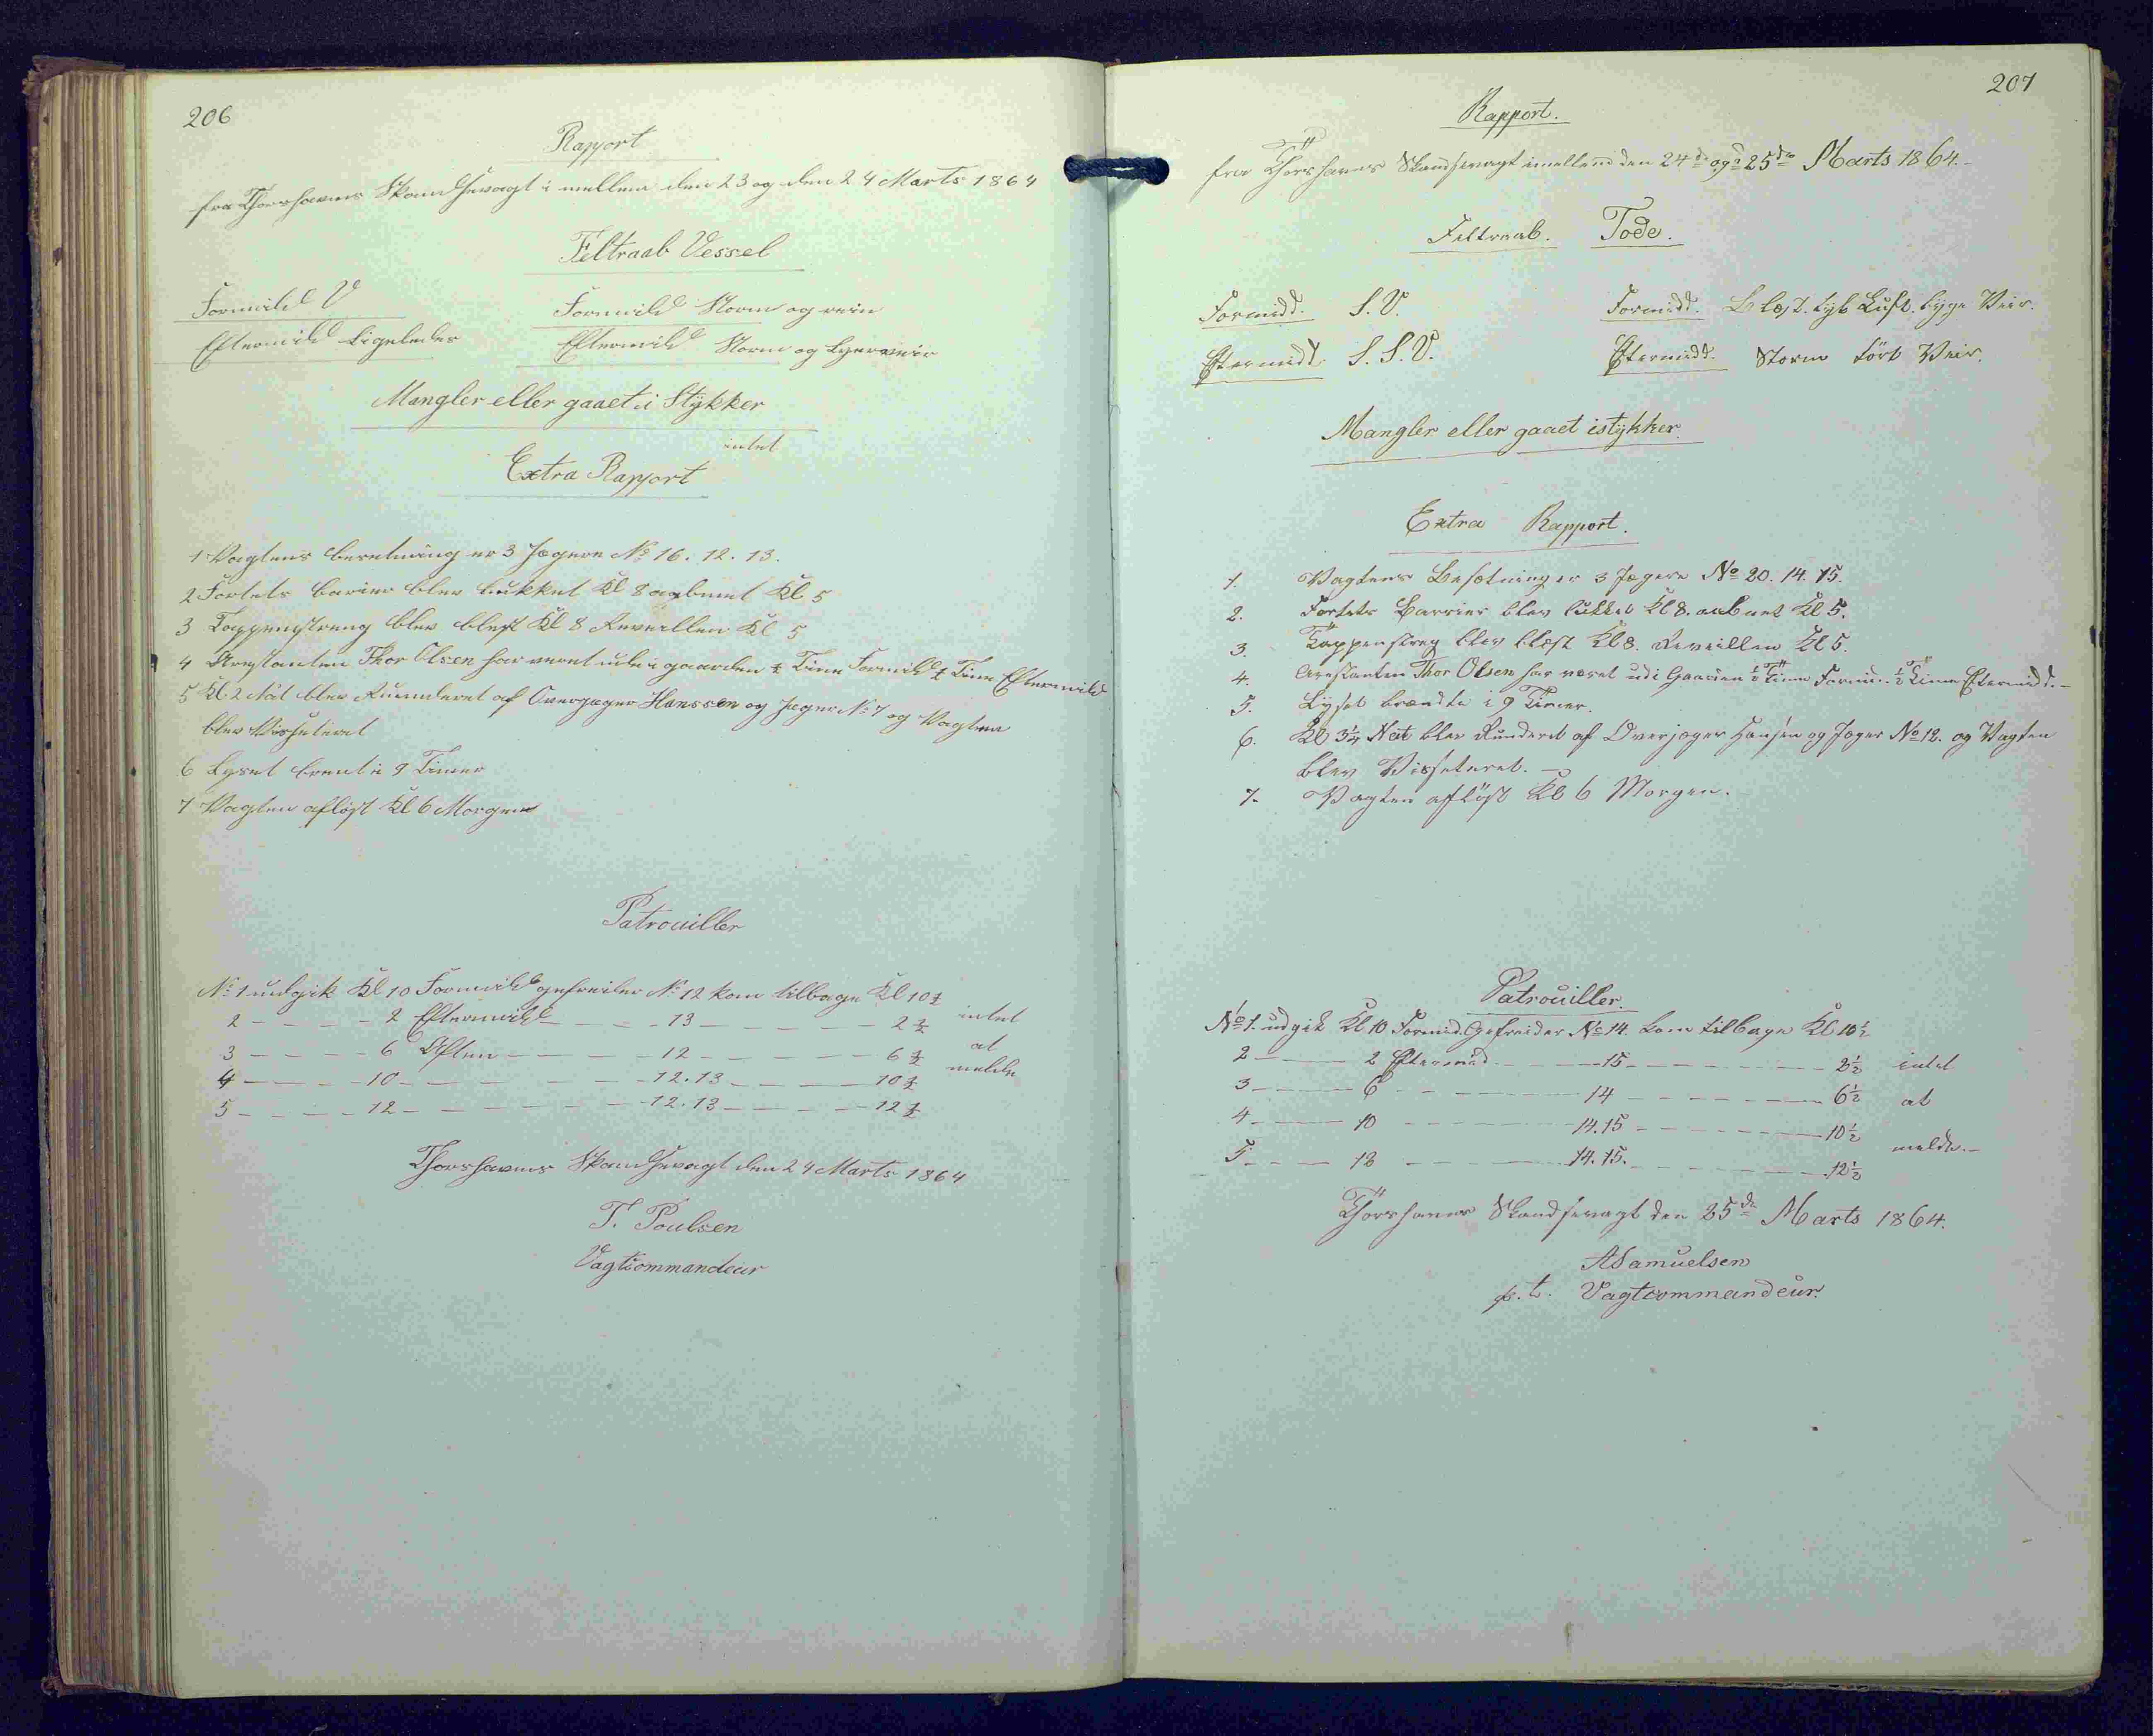 206
Rapport
fra Thorshavns Skandsevagt i mellem den 23 og den 24 Marts 1864
Feltraab Vessel
Formidd V
Formidd Storm og rein
Eftermidd Ligeledes
Eftermidd Storm og
Mangler eller gaaet i Stykker
intet
Extra Rapport
1 Vagtens besetning er 3 Jægere No 16. 12. 13.
2 Fortets barier blev lukket Kl 8 aabnet Kl 5
3 Tappenstreng blev blest Kl 8 Reveillen Kl 5
4 Arestanten Thor Olsen har veret ude i gaarden ½ Time Formidd ½ Time Eftermidd
5 Kl 2 Nat blev Runderet af Overjæger Hanssen og Jæger No 7 og Vagten
blev Visseteret
6 Lyset brent i 9 Timer
7 Vagten afløst Kl 6 Morgen
Patrouiller
No 1 udgik Kl 10 Formidd gefreider No 12 kom tilbage Kl 10½
2 - - - - 2 Eftermidd - - - 13 - - - - 2½ intet
3 - - - - 6 Aften - - - - 12 - - - - - 6½ at
4 - - - - 10 - - - - - - 12.13 - - - - 10½ melde
5 - - - - 12 - - - - - - 12.13 - - - - 12½
Thorshavns Skandsevagt den 24 Marts 1864
T. Poulsen
Vagtcommandeur
207
Rapport.
fra Thorshavns Skandsevagt imellem den 24de og 25de Marts 1864.
Feltraab. Tode.
Formidd. S.V.
Formidd. Blæst. tyk Luft. Veir.
Eftermidd. S.S.V.
Eftermidd. Storm tört Veir.
Mangler eller gaaet istykker.
Extra Rapport.
1. Vagtens Besætning er 3 Jægere No 20. 14. 15.
2. Fortets Barrier blev lukket Kl 8. aabnet Kl 5.
3. Tappenstreg blev blæst Kl 8. Reveillen Kl 5.
4. Arestanten Thor Olsen har været udi Gaarden ½ Time Formid. ½ Time Eftermidd.-
5. Lyset brændte i 9 Timer.
6. Kl 3¼ Nat blev Runderet af Overjæger Hansen og Jæger No 12. og Vagten
blev Visseteret. -
7. Vagten aflöst Kl 6 Morgen.
Patrouiller.
No 1. udgik Kl 10 Formid. Gefreider No 14. kom tilbage Kl 10½
2 - - - 2 Eftermid - - - 15 - - - - - 2½ intet
3 - - - 6 - - - - - 14 - - - - - 6½ at
4 - - - 10 - - - - - 14.15 - - - - - 10½
5 - - - 12 - - - - - 14.15. - - - - - 12½ melde.-
Thörshavns Skandsevagt den 25de Marts 1864.
ASamuelsen
p.t. Vagtcommandeur.